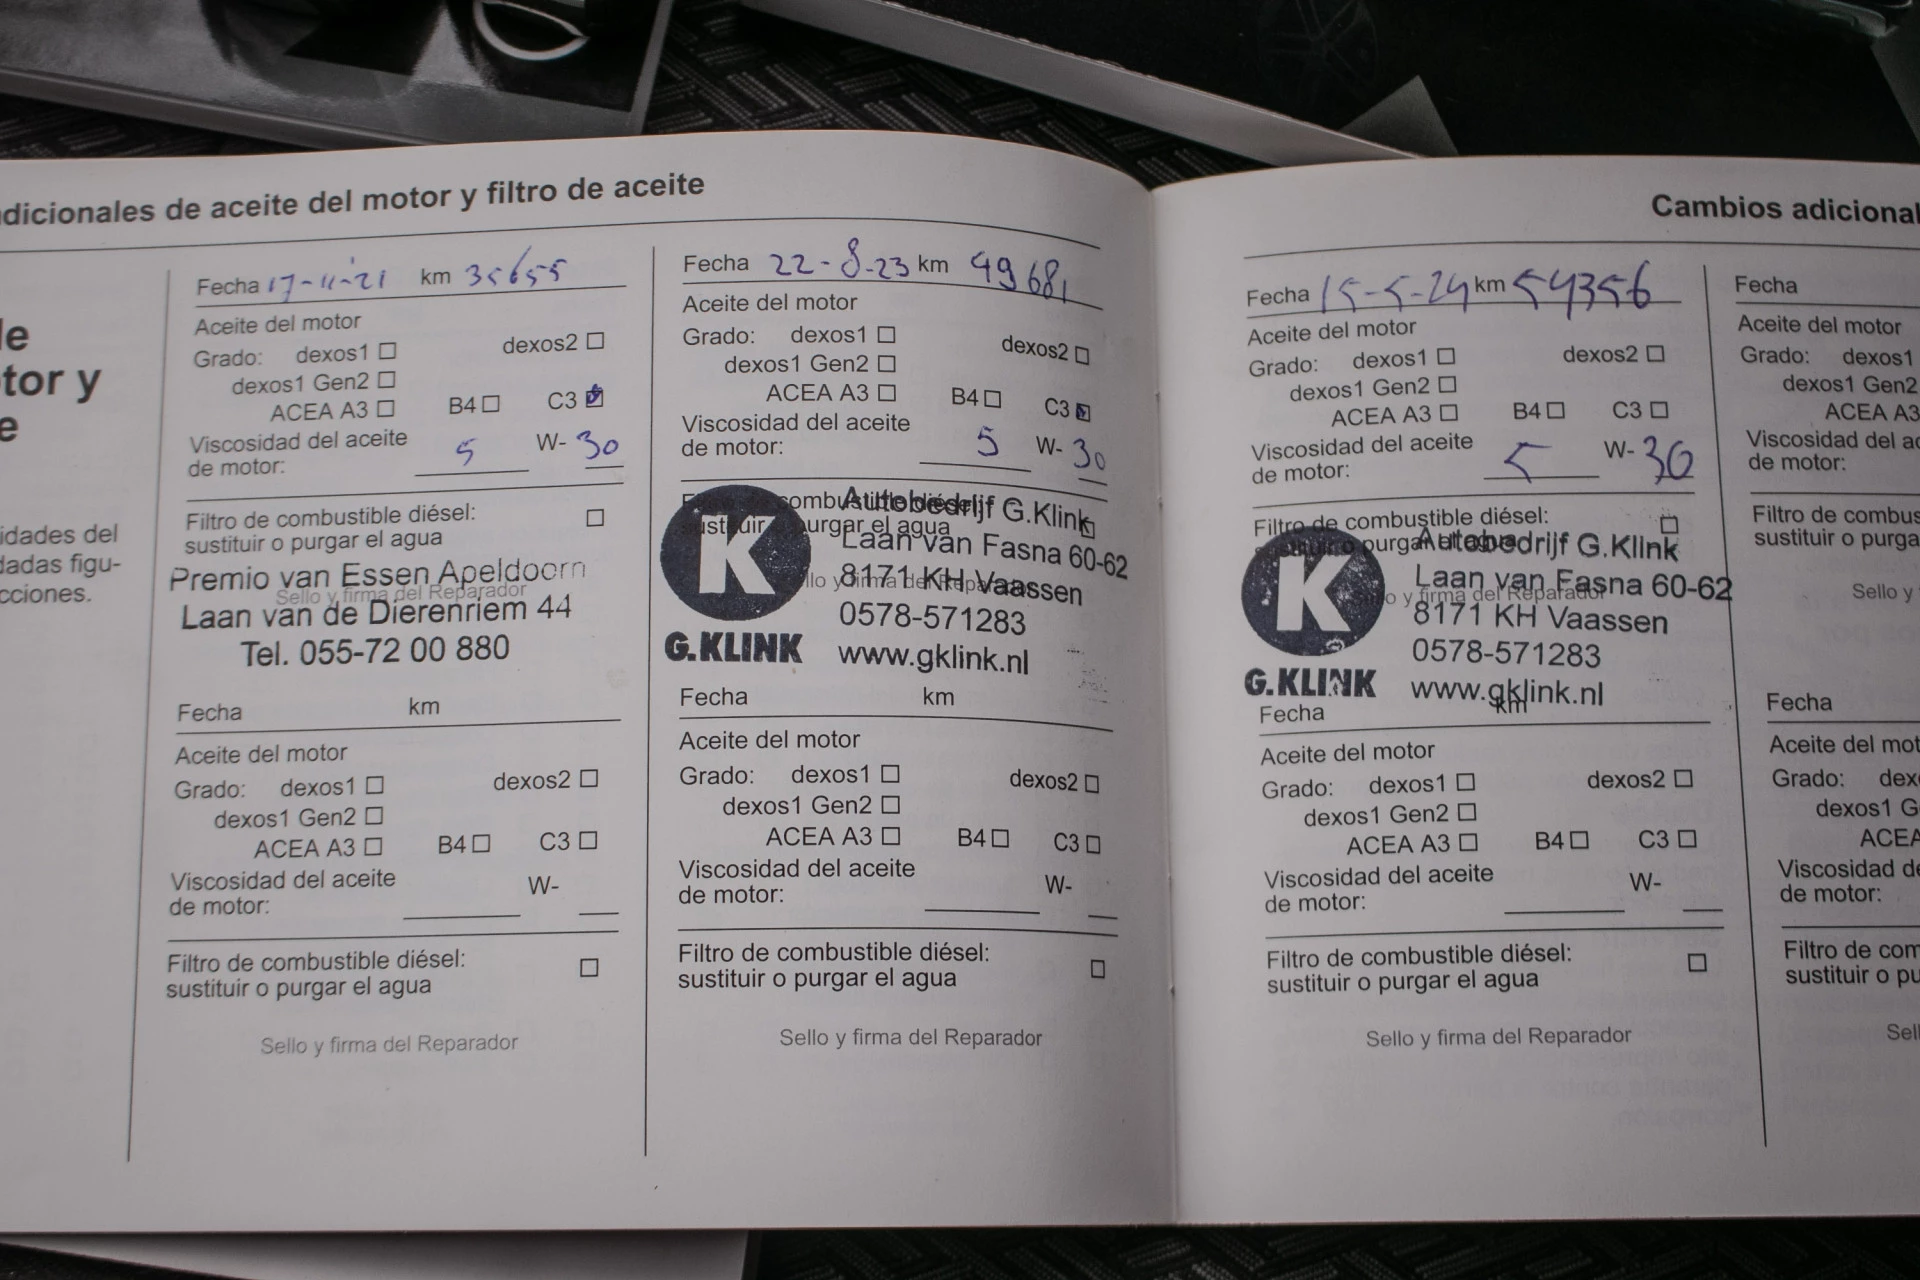 adicionales de aceite del motor y filtro de aceite
de
tor y
e
idades del
dadas figu-
cciones.
Fecha 17-11-'21 km 35655
Aceite del motor
Grado: dexos1 dexos2
dexos1 Gen2
ACEA A3 B4 C3
Viscosidad del aceite
de motor: 5 W- 30
Filtro de combustible diésel:
sustituir o purgar el agua
Premio van Essen Apeldoorn
Sello y firma del Reparador
Laan van de Dierenriem 44
Tel. 055-72 00 880
Fecha km
Aceite del motor
Grado: dexos1 dexos2
dexos1 Gen2
ACEA A3 B4 C3
Viscosidad del aceite W-
de motor:
Filtro de combustible diésel:
sustituir o purgar el agua
Sello y firma del Reparador
Fecha 22-8-23 km 49681
Aceite del motor
Grado: dexos1 dexos2
dexos1 Gen2
ACEA A3 B4 C3
Viscosidad del aceite
de motor: 5 W- 30
combustible diésel:
sustituir purgar el agua
K
G.KLINK
Autobedrijf G.Klink
Laan van Fasna 60-62
8171 KH Vaassen
0578-571283
www.gklink.nl
Fecha km
Aceite del motor
Grado: dexos1 dexos2
dexos1 Gen2
ACEA A3 B4 C3
Viscosidad del aceite W-
de motor:
Filtro de combustible diésel:
sustituir o purgar el agua
Sello y firma del Reparador
Cambios adicional
Fecha 15-5-24 km 54356
Aceite del motor
Grado: dexos1 dexos2
dexos1 Gen2
ACEA A3 B4 C3
Viscosidad del aceite
de motor: 5 W- 30
Filtro de combustible diésel:
o purgar
K
G.KLINK
Autobedrijf G.Klink
Laan van Fasna 60-62
y firma del Reparador
8171 KH Vaassen
0578-571283
www.gklink.nl
Fecha km
Aceite del motor
Grado: dexos1 dexos2
dexos1 Gen2
ACEA A3 B4 C3
Viscosidad del aceite W-
de motor:
Filtro de combustible diésel:
sustituir o purgar el agua
Sello y firma del Reparador
Fecha
Aceite del motor
Grado: dexos1
dexos1 Gen2
ACEA A3
Viscosidad del a
de motor:
Filtro de combus
sustituir o purga
Sello y
Fecha
Aceite del mot
Grado: dex
dexos1 G
ACEA
Viscosidad de
de motor:
Filtro de com
sustituir o pu
Sell